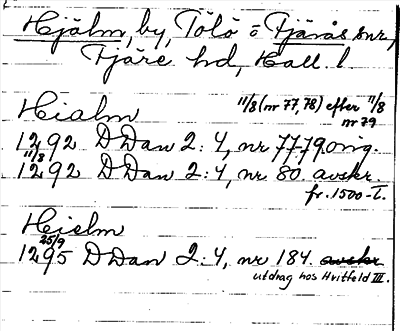 Hjälm, by, Tölö o Fjärås snr,
Fjäre hd, Hall. l.
Hialm 11/8 (nr 77, 78) efter 11/8
nr 79
1292 DDan 2:4, nr 77-79 orig.
11/8
1292 DDan 2:4, nr 80. avskr.
fr. 1500-t.
Hielm
25/9
1295 DDan 2:4, nr 184. avskr
utdrag hos Hvitfeld III.